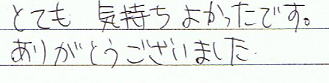 とても 気持ちよかったです。
ありがとうございました